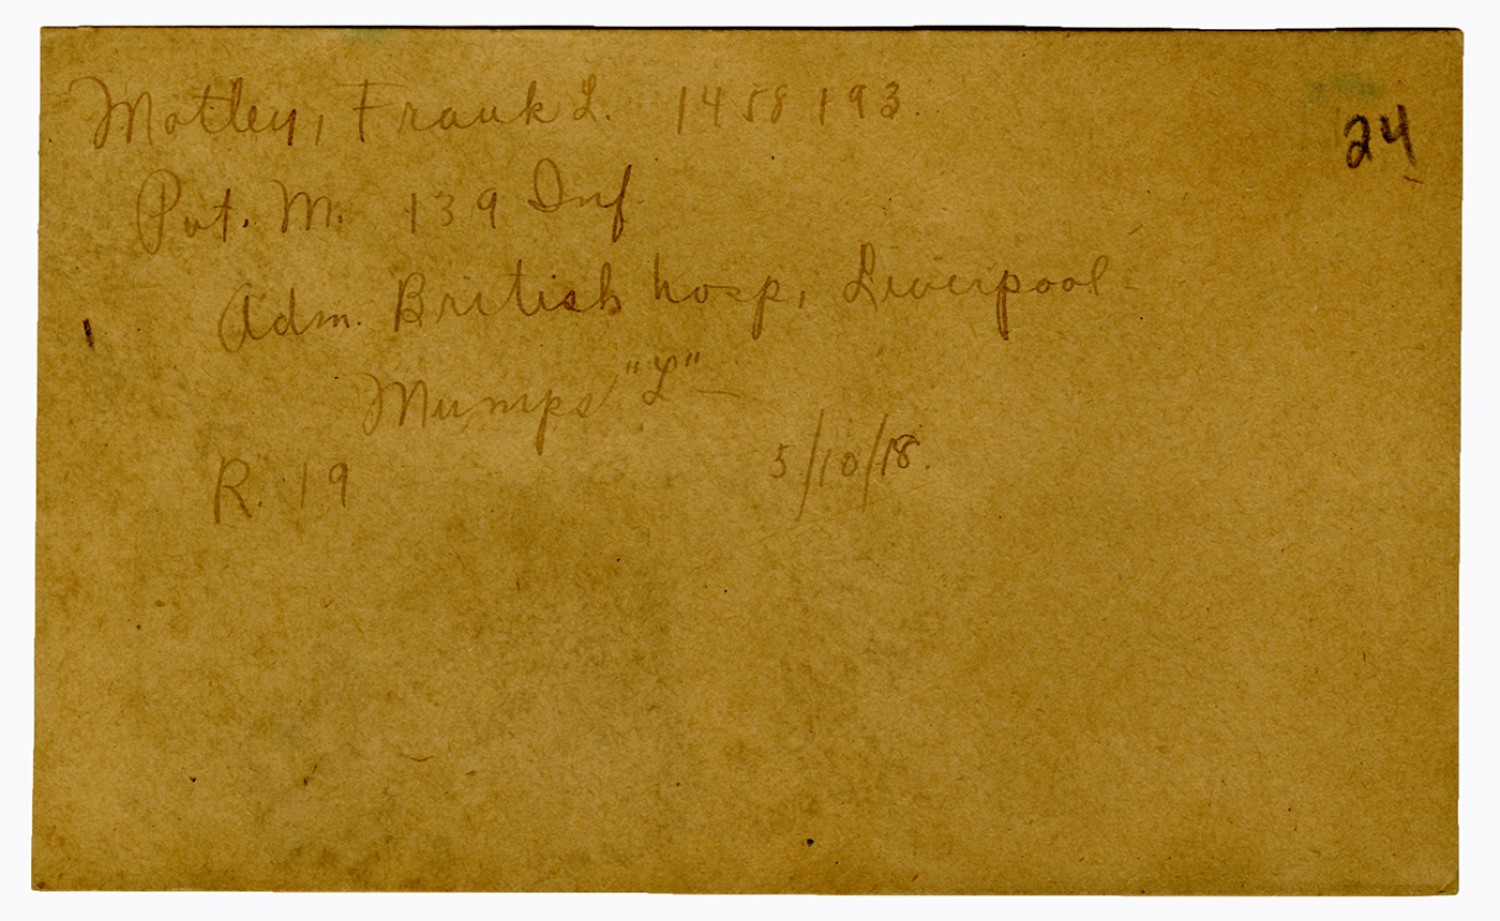 Motley, Frank L. 1458193.
24
Pvt. M. 139 Inf
Adm. British hosp, Liverpool -
Mumps "L" -
R. 19 5/10/18.